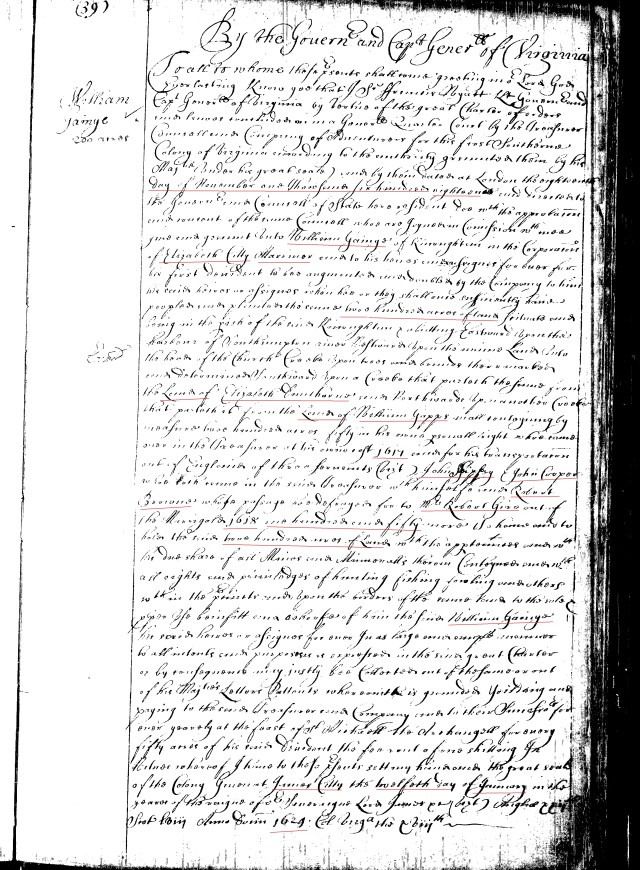 (39)
By the Govern:r and Capt Gener:ll of Virginia
To all to whome these psents shall come greeting in our Lord God
William
Gainye
200 acres
Everlasting Know yee that I Sr Ffrancis Wyatt Kt Governor and
Capt Generall of Virginia by vertue of the great Charter of orders
and lawes concluded on in a Generall Quarter Court by the Treasurer
Councell and Company of Adventurers for this first Southerne
Colony of Virginia according to the authority graunted them by his
Majtie under his great seale and by them dated at London the eighteenth
day of November one Thowsand six hundred eighteene and directed to
the Governor and Councell of State here resident doe with the approbation
and consent of the same Councell who are Joyned in Comission with mee
give and graunt unto William Gainye of Kicoughtan in the Corporation
of Elizabeth Citty Marriner and to his heires and assignes for ever for
his first devident to bee augmented and doubled by the Company to him
his said heires or assignes when hee or they shall once sufficiently have
peopled and planted the same two hundred acres of land scituate and
being in the of the said Kicoughtan abutting Eastward upon the
harbour of Southampton river Westward upon the maine Land
the head of the Church Creeke
and determined Southward upon a Creeke that parteth the same from
the Land of Elizabeth Dunthorne and Northward upon another Creeke
that parteth it from the Land of William Gapps and contayning by
measure two hundred acres fifty in his owne psonall right who came
over in the Treasurer at his owne cost 1617 and for his transportation
out of England of three servants (vizt) John John Cooper
who both came in the said Treasurer with himselfe and Robert
Browne whose passage was defrayed for to Mr Robert Gire out of
the Marrigold 1618 one hundred and fifty more To have and to
hold the said two hundred acres of Land with the appertinces and with
his due share of all Mines and Mineralls therein Conteyned and with
all rights and priviledges of hunting fishing fowling and others
within the precincts and upon the borders of the same Land to the sole
pper use benifitt and behoofe of him the said William Gainye
his said heires or assignes for ever In as large and ample manner
to all intents and purposes as is expressed in the said great Charter
or by consequence may justly bee Collected out of the same or out
of his Majties Letters Pattents whereon it is grounded Yeilding and
paying to the said Treasurer and Company and to their Successrs for
ever yearely at the feast of St Michaell the Archangell for every
fifty acres of his said Devident the fee rent of one shilling In
witnes whereof I have to these psents sett my hand and the great seale
of the Colony Given at James Citty the twelfth day of January in the
yeares of the raigne of or Soveraigne Lord James
Anno Domi 1624